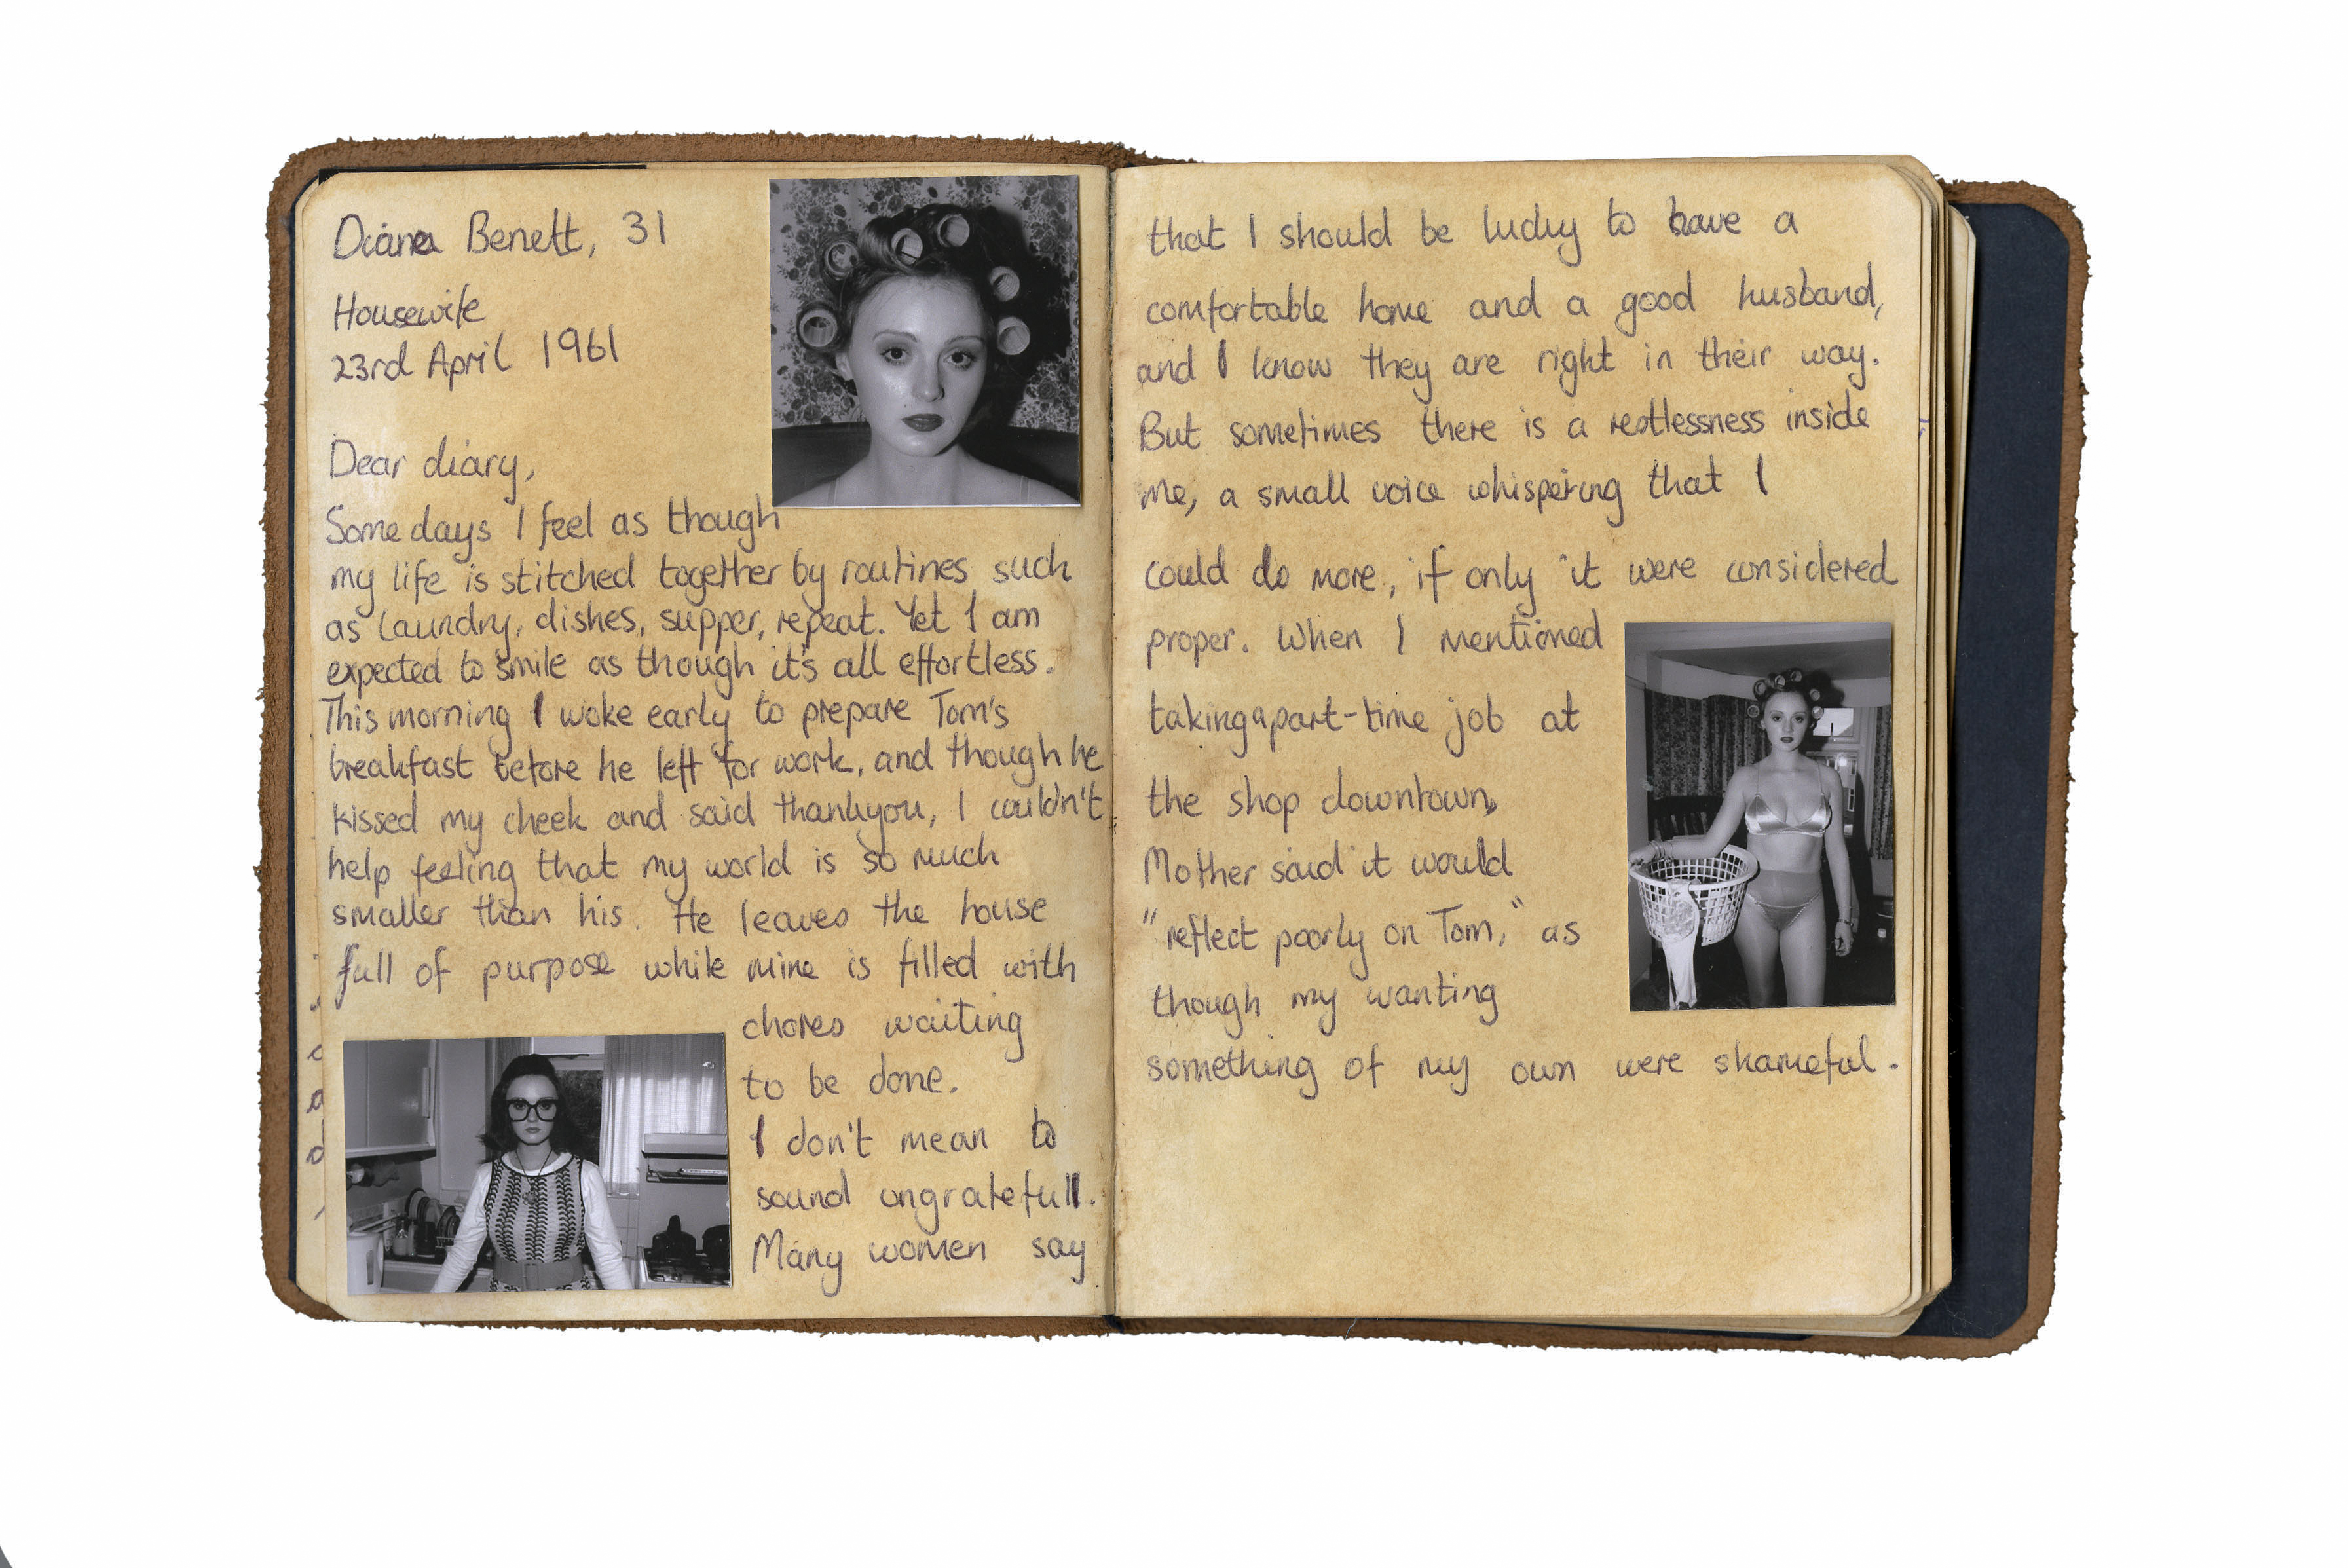 Diana Benett, 31
Housewife
23rd April 1961
Dear diary,
Some days I feel as though
my life is stitched together by routines such
as laundry, dishes, supper, repeat. Yet I am
expected to smile as though it's all effortless.
This morning I woke early to prepare Tom's
breakfast before he left for work, and though he
kissed my cheek and said thankyou, I couldn't
help feeling that my world is so much
smaller than his. He leaves the house
full of purpose while mine is filled with
chores waiting
to be done.
I don't mean to
sound ungratefull.
Many women say
that I should be lucky to have a
comfortable home and a good husband,
and I know they are right in their way.
But sometimes there is a restlessness inside
me, a small voice whispering that I
could do more, if only it were considered
proper. When I mentioned
taking a part-time job at
the shop downtown,
Mother said it would
"reflect poorly on Tom," as
though my wanting
something of my own were shameful.